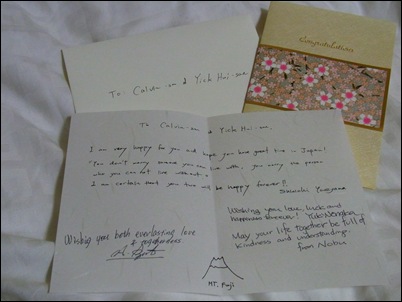 Congratulations
To: Calvin-san & Yick Hui-san
To Calvin-san & Yick Hui-san,
I am very happy for you and hope you have great time in Japan!
"You don't marry someone you can live with, you marry the person
who you can not live without."
I am certain that you two will be happy forever!!
Wishing your love, luck and
happiness forever! Yuko
May your life together be full of
kindness and understanding.
from Nobu
Wishing you both everlasting love
& togetherness
MT. Fuji